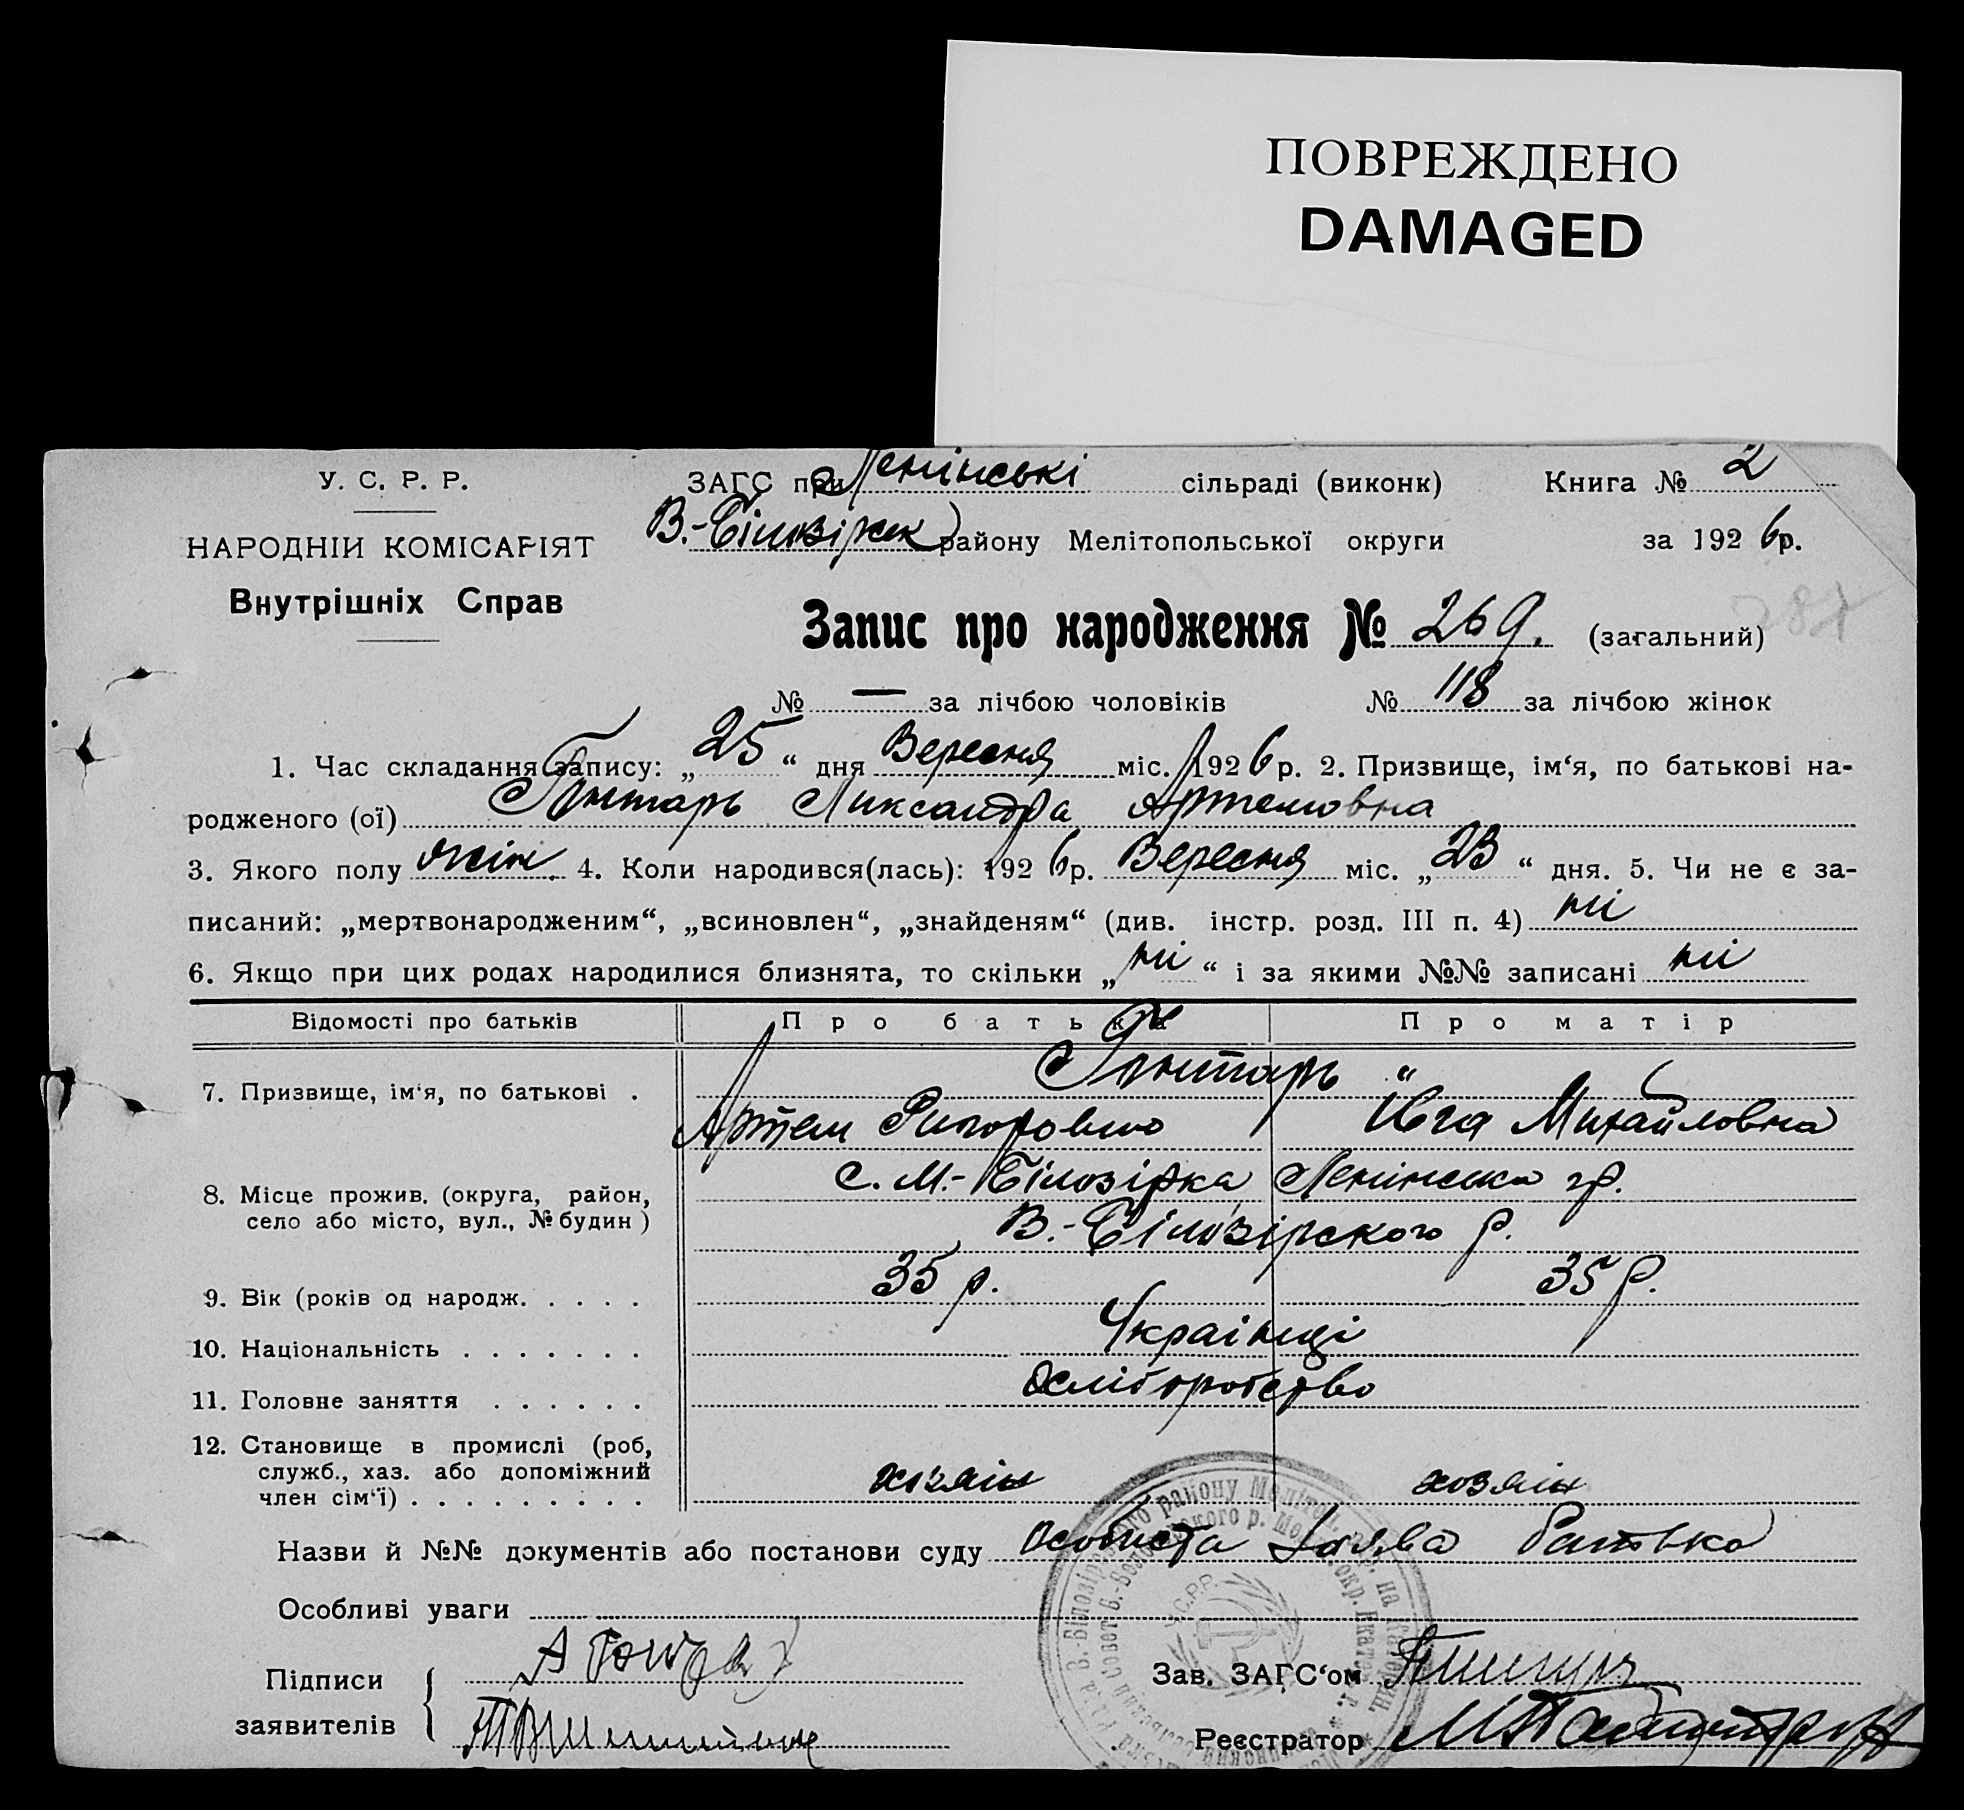 ПОВРЕЖДЕНО
DAMAGED
У. С. Р. Р.
ЗАГС при Ленінські сільраді (виконк) Книга № 2
НАРОДНІЙ КОМІСАРІЯТ
В.-Білозірск району Мелітопольської округи за 1926 р.
Внутрішніх Справ
Запис про народження № 269. (загальний)
№ — за лічбою чоловіків № 118 за лічбою жінок
1. Час складання запису: „25“ дня Вересня міс. 1926 р. 2. Призвище, ім‘я, по батькові на-
родженого (ої) Гонтарь Ликсандра Артемовна
3. Якого полу жін. 4. Коли народився(лась): 1926 р. Вересня міс. „23“ дня. 5. Чи не є за-
писаний: „мертвонародженим“, „всиновлен“, „знайденям“ (див. інстр. розд. III п. 4) ні
6. Якщо при цих родах народилися близнята, то скільки „ні“ і за якими №№ записані ні
Відомості про батьків Про батька Про матір
7. Призвище, ім‘я, по батькові . Гонтарь "
Артем Івга Михайловна
8. Місце прожив. (округа, район, с. М.-Білозірка, Ленінська гр.
село або місто, вул., № будин) В.-Білозірского р.
9. Вік (років од народж. . . . . 35 р. 35 р.
10. Національність . . . . . . . Українці
11. Головне заняття . . . . . . хліборобство
12. Становище в промислі (роб,
служб., хаз. або допоміжний хозяін хозяін
член сім‘ї) . . . . . . . . .
Назви й №№ документів або постанови суду особиста заява батька
Особливі уваги
Підписи А Гонтар Зав. ЗАГС‘ом
заявителів Реєстратор